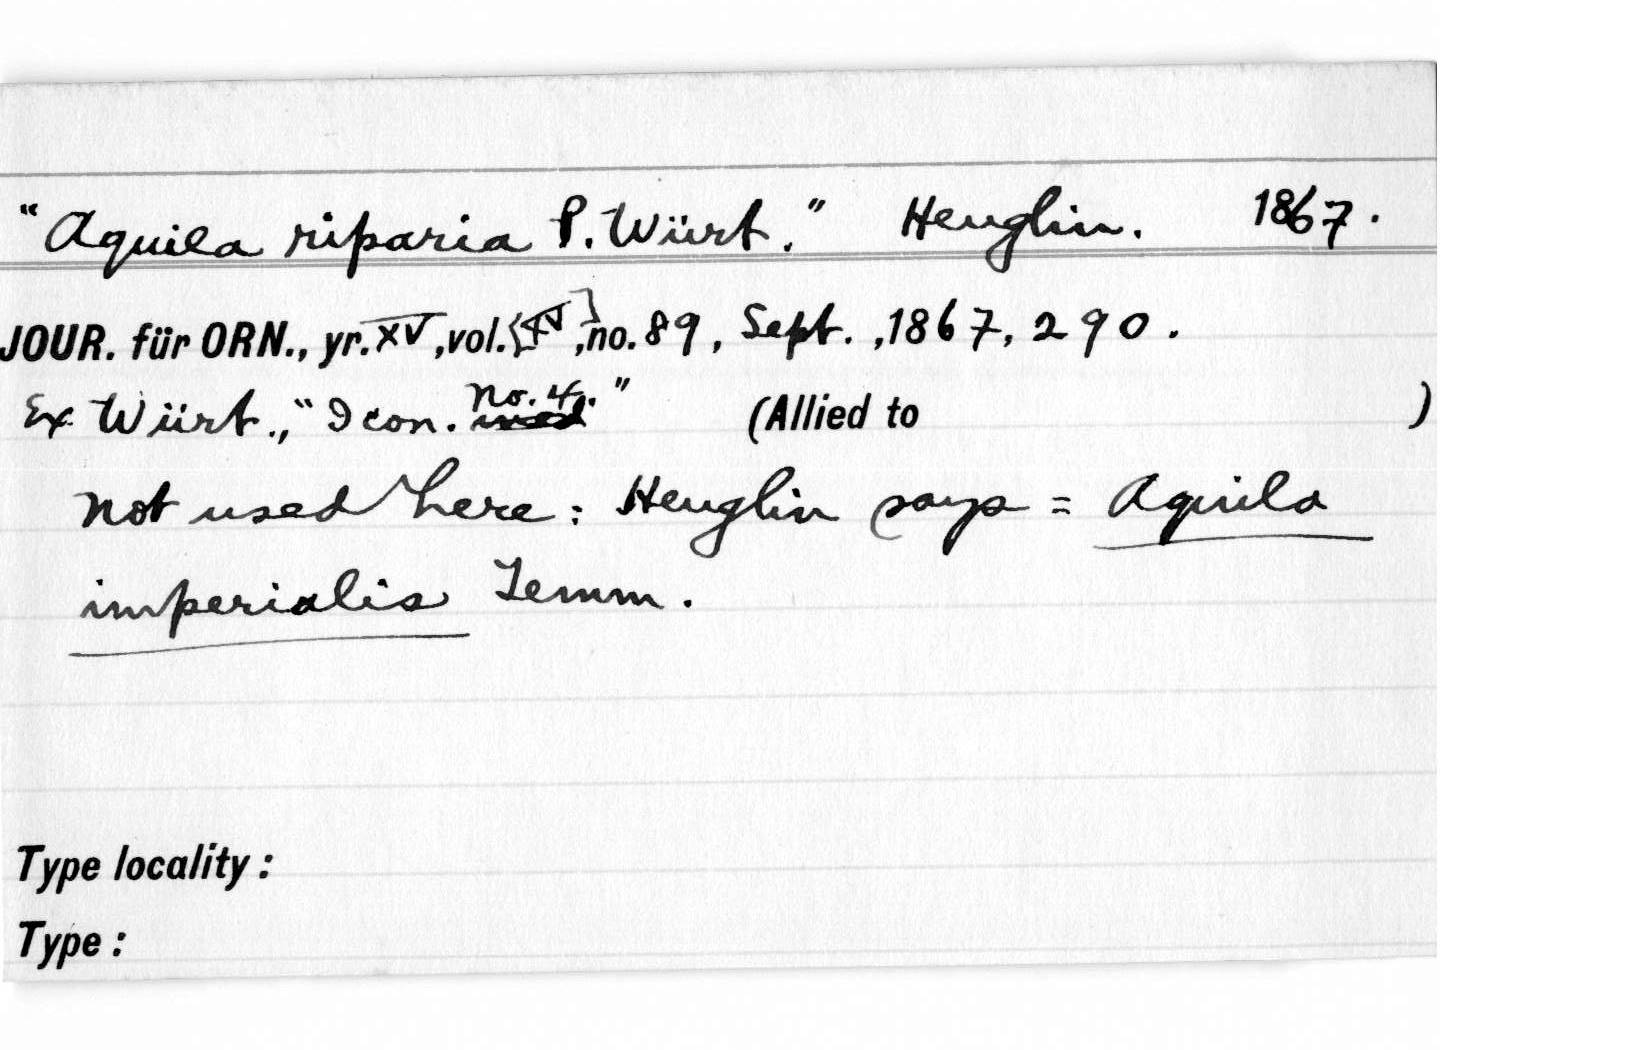 "Aquila riparia P. Würt." Heuglin. 1867.
JOUR. für ORN., yr. XV, vol. [XV], no. 89, Sept., 1867, 290.
Ex Würt., "Icon. No. 4." (Allied to )
Not used here: Heuglin says = Aquila
imperialis Temm.
Type locality:
Type: